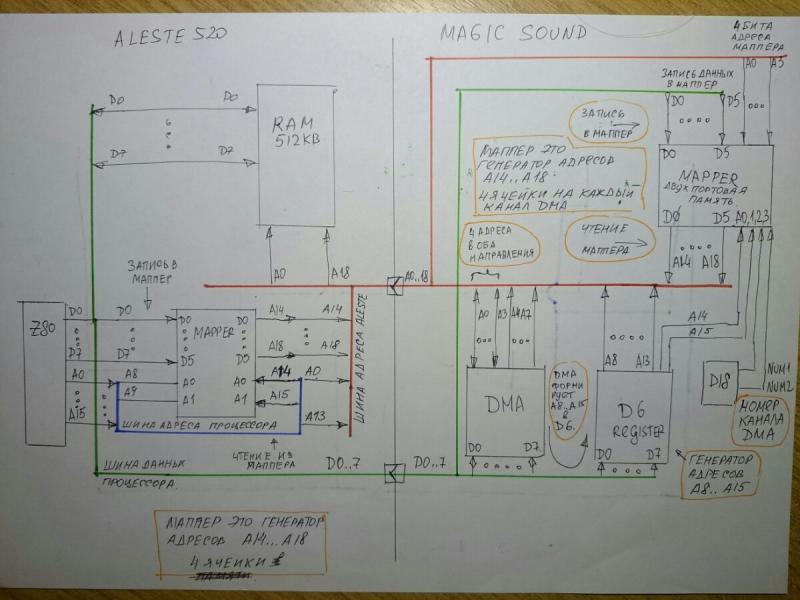 ALESTE 520
MAGIC SOUND
4 БИТА
АДРЕСА
МАППЕРА
A0
A3
D0
D0
D7
D7
RAM
512KB
A0
A18
ЗАПИСЬ ДАННЫХ
В МАППЕР
D0
D5
ЗАПИСЬ
В МАППЕР
МАППЕР ЭТО
ГЕНЕРАТОР АДРЕСОВ
A14..A18
4 ЯЧЕЙКИ НА КАЖДЫЙ
КАНАЛ DMA
D0
D5
MAPPER
ДВУХ ПОРТОВАЯ
ПАМЯТЬ
D0
D5
A0,1,2,3
4 АДРЕСА
В ОБА
НАПРАВЛЕНИЯ
ЧТЕНИЕ
МАППЕРА
A14
A18
A0..18
ЗАПИСЬ В
МАППЕР
Z80
D0
D0
D7
D7
A0
A8
A9
A15
MAPPER
D0
D0
D5
D5
A0
A0
A1
A1
A14
A14
A18
A18
A14
A0
A15
A13
ШИНА АДРЕСА ALESTE
ШИНА АДРЕСА ПРОЦЕССОРА
ЧТЕНИЕ ИЗ
МАППЕРА
ШИНА ДАННЫХ
ПРОЦЕССОРА.
D0..7
D0..7
A0
A3
A4
A7
DMA
D0
D7
DMA
ФОРМИ
РУЕТ
A8..A15
В
D6.
A8
A13
A14
A15
D6
REGISTER
D0
D7
D18
NUM1
NUM2
НОМЕР
КАНАЛА
DMA
ГЕНЕРАТОР
АДРЕСОВ
A8..A15
МАППЕР ЭТО ГЕНЕРАТОР
АДРЕСОВ A14...A18
4 ЯЧЕЙКИ
ПАМЯТИ